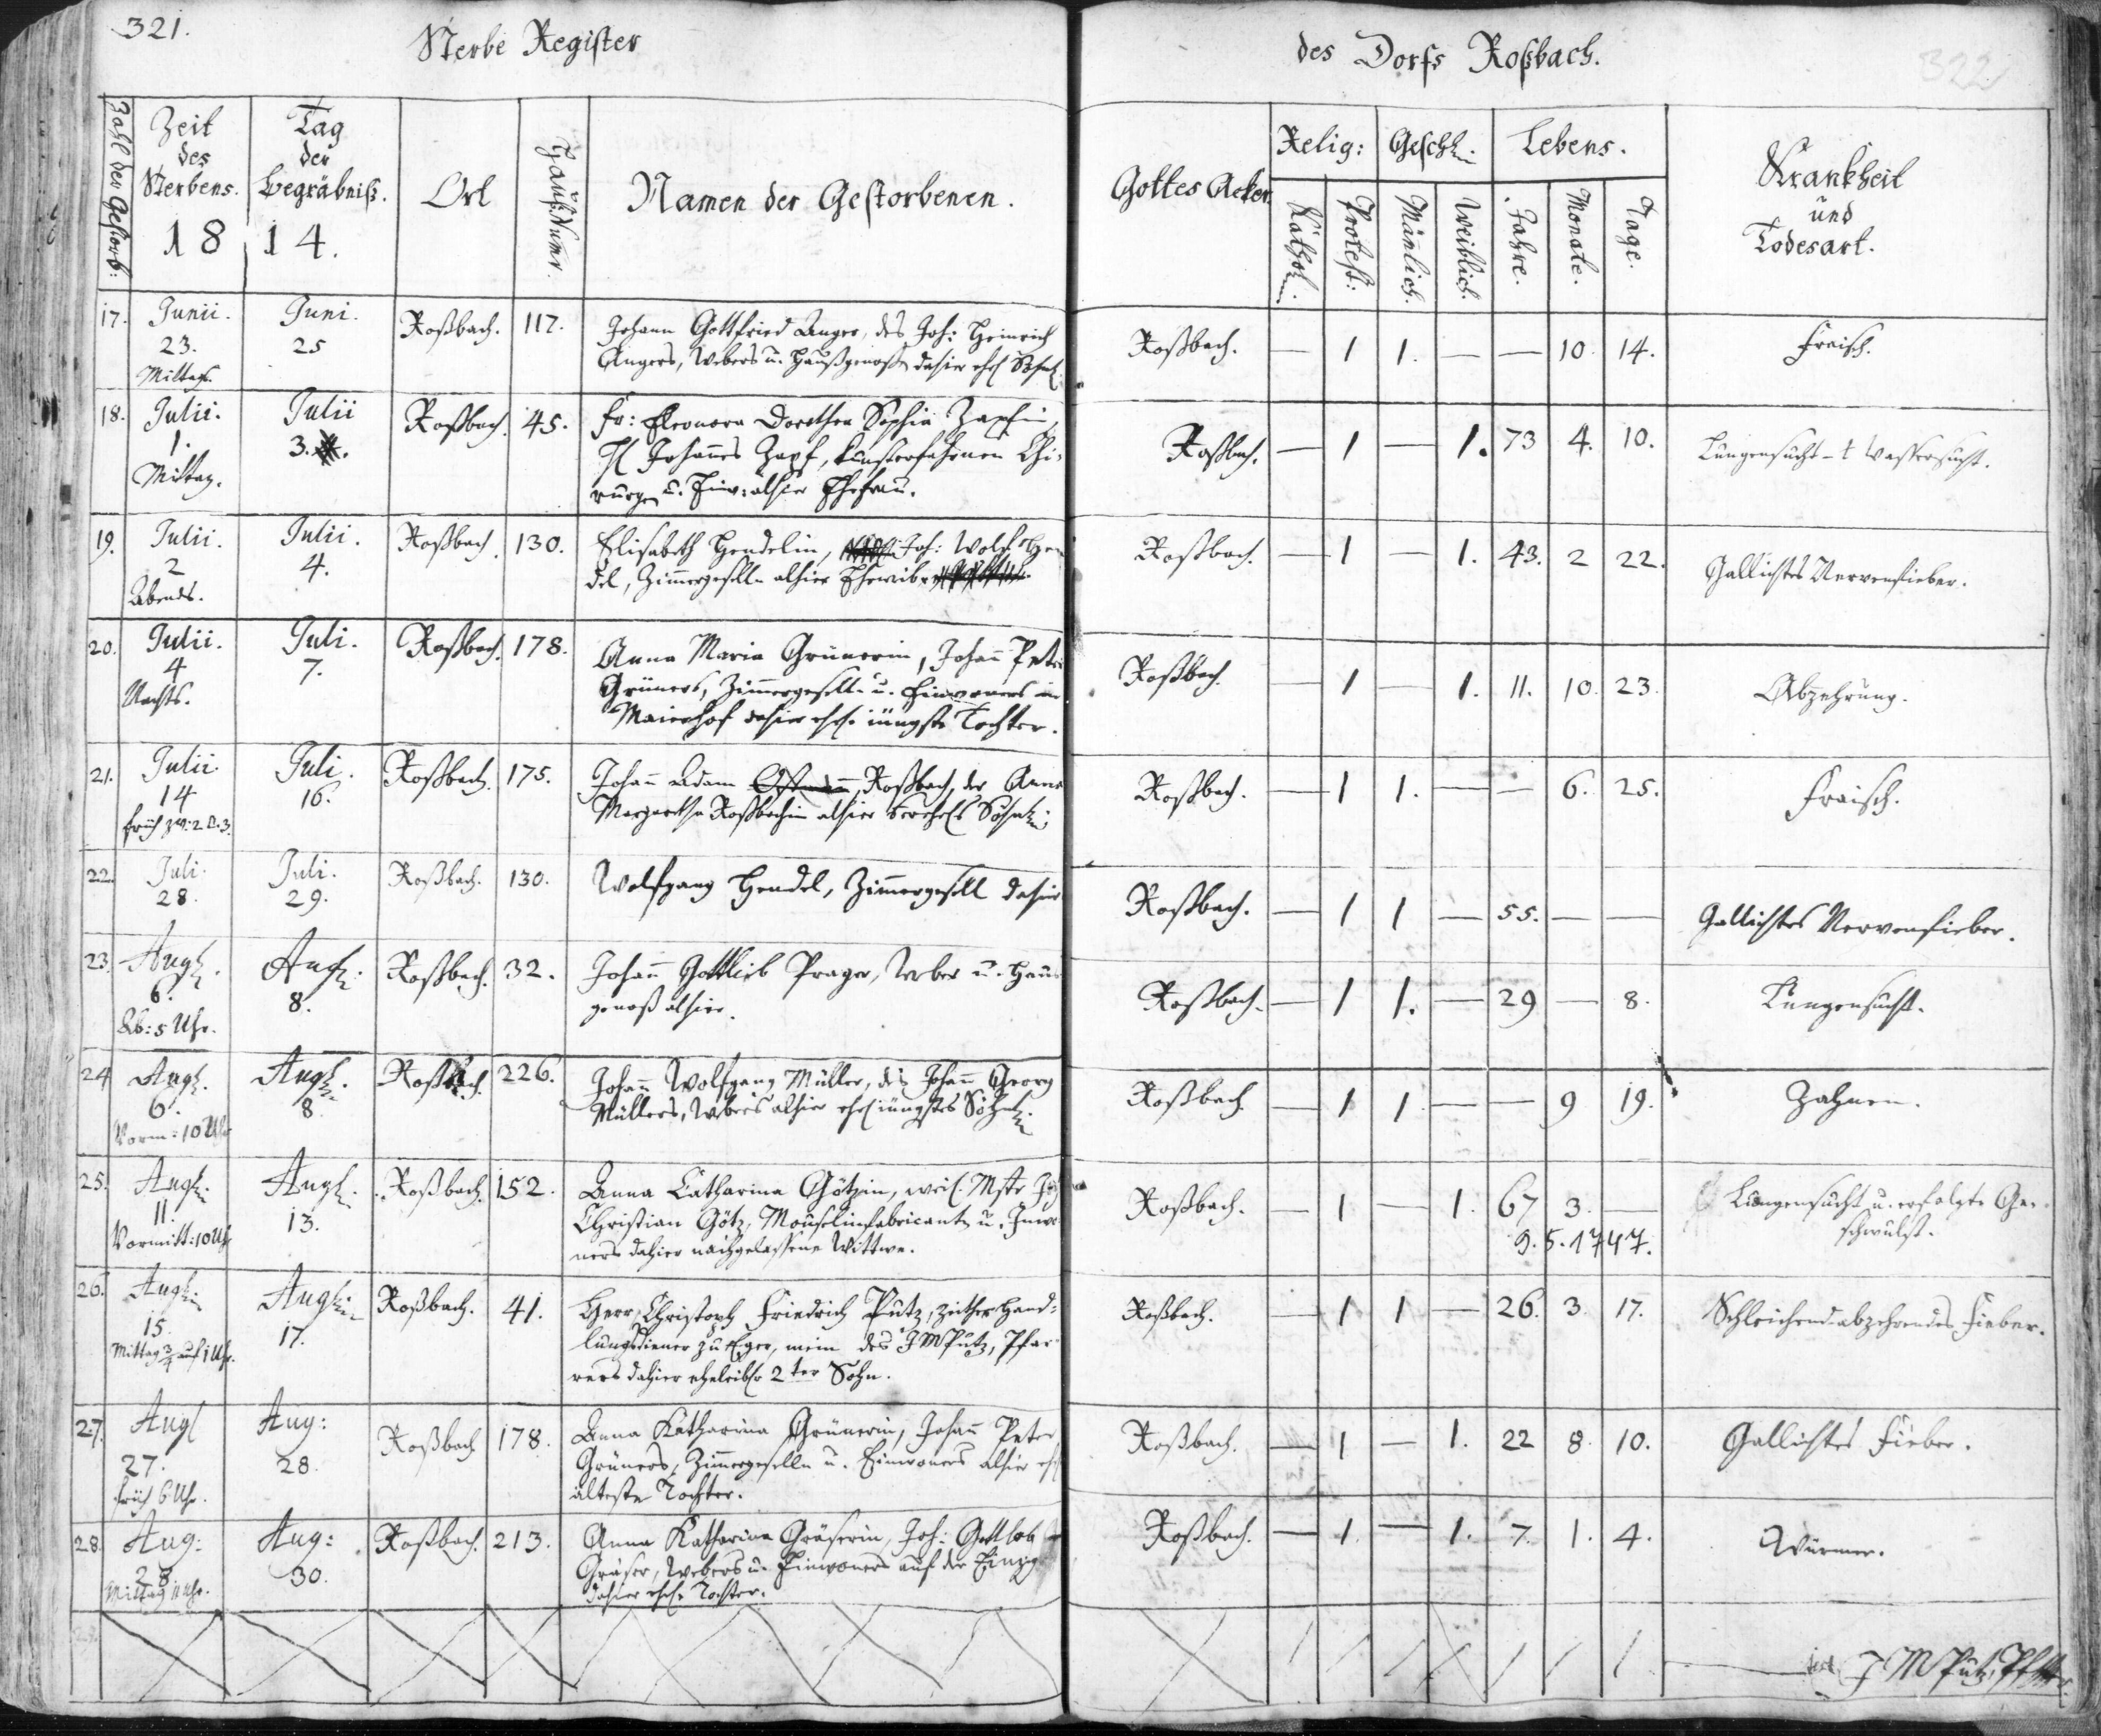 321.
Sterbe Register
des Dorfs Roßbach.
322
Zahl der Gestorb:
Zeit des Sterbens.
Tag der Begräbniß.
18 14.
Ort
Hauß Numr.
Namen der Gestorbenen.
Gottes Acker.
Relig:
Kathol.
Protest:
Geschl.
Mänlich.
Weiblich.
Lebens.
Jahre.
Monate.
Tage.
Krankheit
und
Todesart.
17. Junii. 23. Mittags. Juni. 25 Roßbach. 117.
Johann Gottfried Unger, des Joh: Heinrich
Ungers, Webers u. Haußgenoße dahier ehel Söhnl.
Roßbach. — 1 1. — — 10. 14. Fraisch.
18. Julii. 1. Mittag. Julii 3. Roßbach. 45.
Fr: Eleonora Dorothea Sophia Zapfin,
H Johannes Zapf, kunsterfahrnen Chi-
rurgen u. Einw: alhier Ehefrau.
Roßbach. — 1 — 1. 73 4. 10. Lungensucht - t Wassersucht.
19. Julii. 2 Abends. Julii. 4. Roßbach. 130.
Elisabeth Hendelin, Joh: Wolf Hen
del, Zimergeselle alhier Eheweib.
Roßbach. — 1 — 1. 43. 2 22. Gallichtes Nervenfieber.
20. Julii. 4 Nachts. Juli. 7. Roßbach. 178.
Anna Maria Grünerin, Johann Peter
Grüners, Zimergeselle u. Einwoners im
Maierhof dahier ehel. jüngste Tochter.
Roßbach. — 1 — 1. 11. 10. 23. Abzehrung.
21. Julii. 14 früh zw: 2 u. 3. Juli. 16. Roßbach. 175.
Johann Adam Roßbach, der Anna
Margaretha Roßbachin alhier Söhnl.
Roßbach. — 1 1. — — 6. 25. Fraisch.
22. Juli. 28. Juli. 29. Roßbach. 130.
Wolfgang Hendel, Zimergesell dahier
Roßbach. — 1 1 — 55. — — Gallichtes Nervenfieber.
23. Aug. 6. Ab: 5 Uhr. Aug. 8. Roßbach. 32.
Johann Gottlieb Prager, Weber u. Hauß
genoß alhier.
Roßbach. — 1 1. — 29 — 8. Lungensucht.
24 Aug. 6. Vorm: 10 Uhr Aug. 8. Roßbach. 226.
Johann Wolfgang Müller, des Johann Georg
Müllers, Webers alhier ehel jüngstes Söhnl.
Roßbach. — 1 1 — — 9 19. Zahnen.
25. Aug. 11. Vormitt: 10 Uhr Aug. 13. Roßbach. 152.
Anna Catharina Götzin, weil. Mstr Joh
Christian Götz, Mouselinfabricant u. Inwo
ners dahier nachgelassene Wittwe.
Roßbach. — 1 — 1. 67 3. — Lungensucht u. erfolgte Ge-
schwulst.
9. 5. 1747.
26. Aug. 15. Mittag 3/4 auf 1 Uhr. Aug. 17. Roßbach. 41.
Herr Christoph Friedrich Putz, zeither Hand-
lungsdiener zu Eger, mein des J M Putz, Pfar-
rers dahier eheleibl 2ter Sohn.
Roßbach. — 1 1 — 26. 3. 17. Schleichend abzehrendes Fieber.
27. Aug 27. früh 6 Uhr. Aug: 28. Roßbach 178.
Anna Katharina Grünerin, Johann Peter
Grüners, Zimergeselle u. Einwoners alhier ehel
älteste Tochter.
Roßbach. — 1 — 1. 22 8. 10. Gallichtes Fieber.
28. Aug: 28 Mittag 11 Uhr. Aug: 30. Roßbach. 213.
Anna Katharina Gräserin, Joh: Gottlob
Gräser, Webers u. Einwoners auf der
dahier ehel. Tochter.
Roßbach. — 1. — 1. 7. 1. 4. Würmer.
J M Putz, Pfarrer